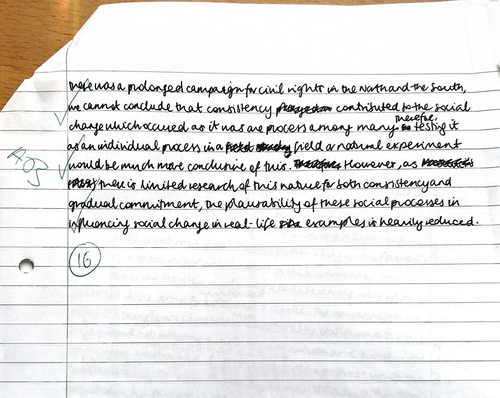 there was a prolonged campaign for civil rights in the North and the South,
we cannot conclude that consistency contributed to the social
therefore,
change which occured as it was are process among many testing it
as an individual process in a field or natural experiment
would be much more conclusive of this. However, as
there is limited research of this nature for both consistency and
AO3
gradual commitment, the plausability of these social processes in
influencing social change in real-life examples is heavily reduced.
16